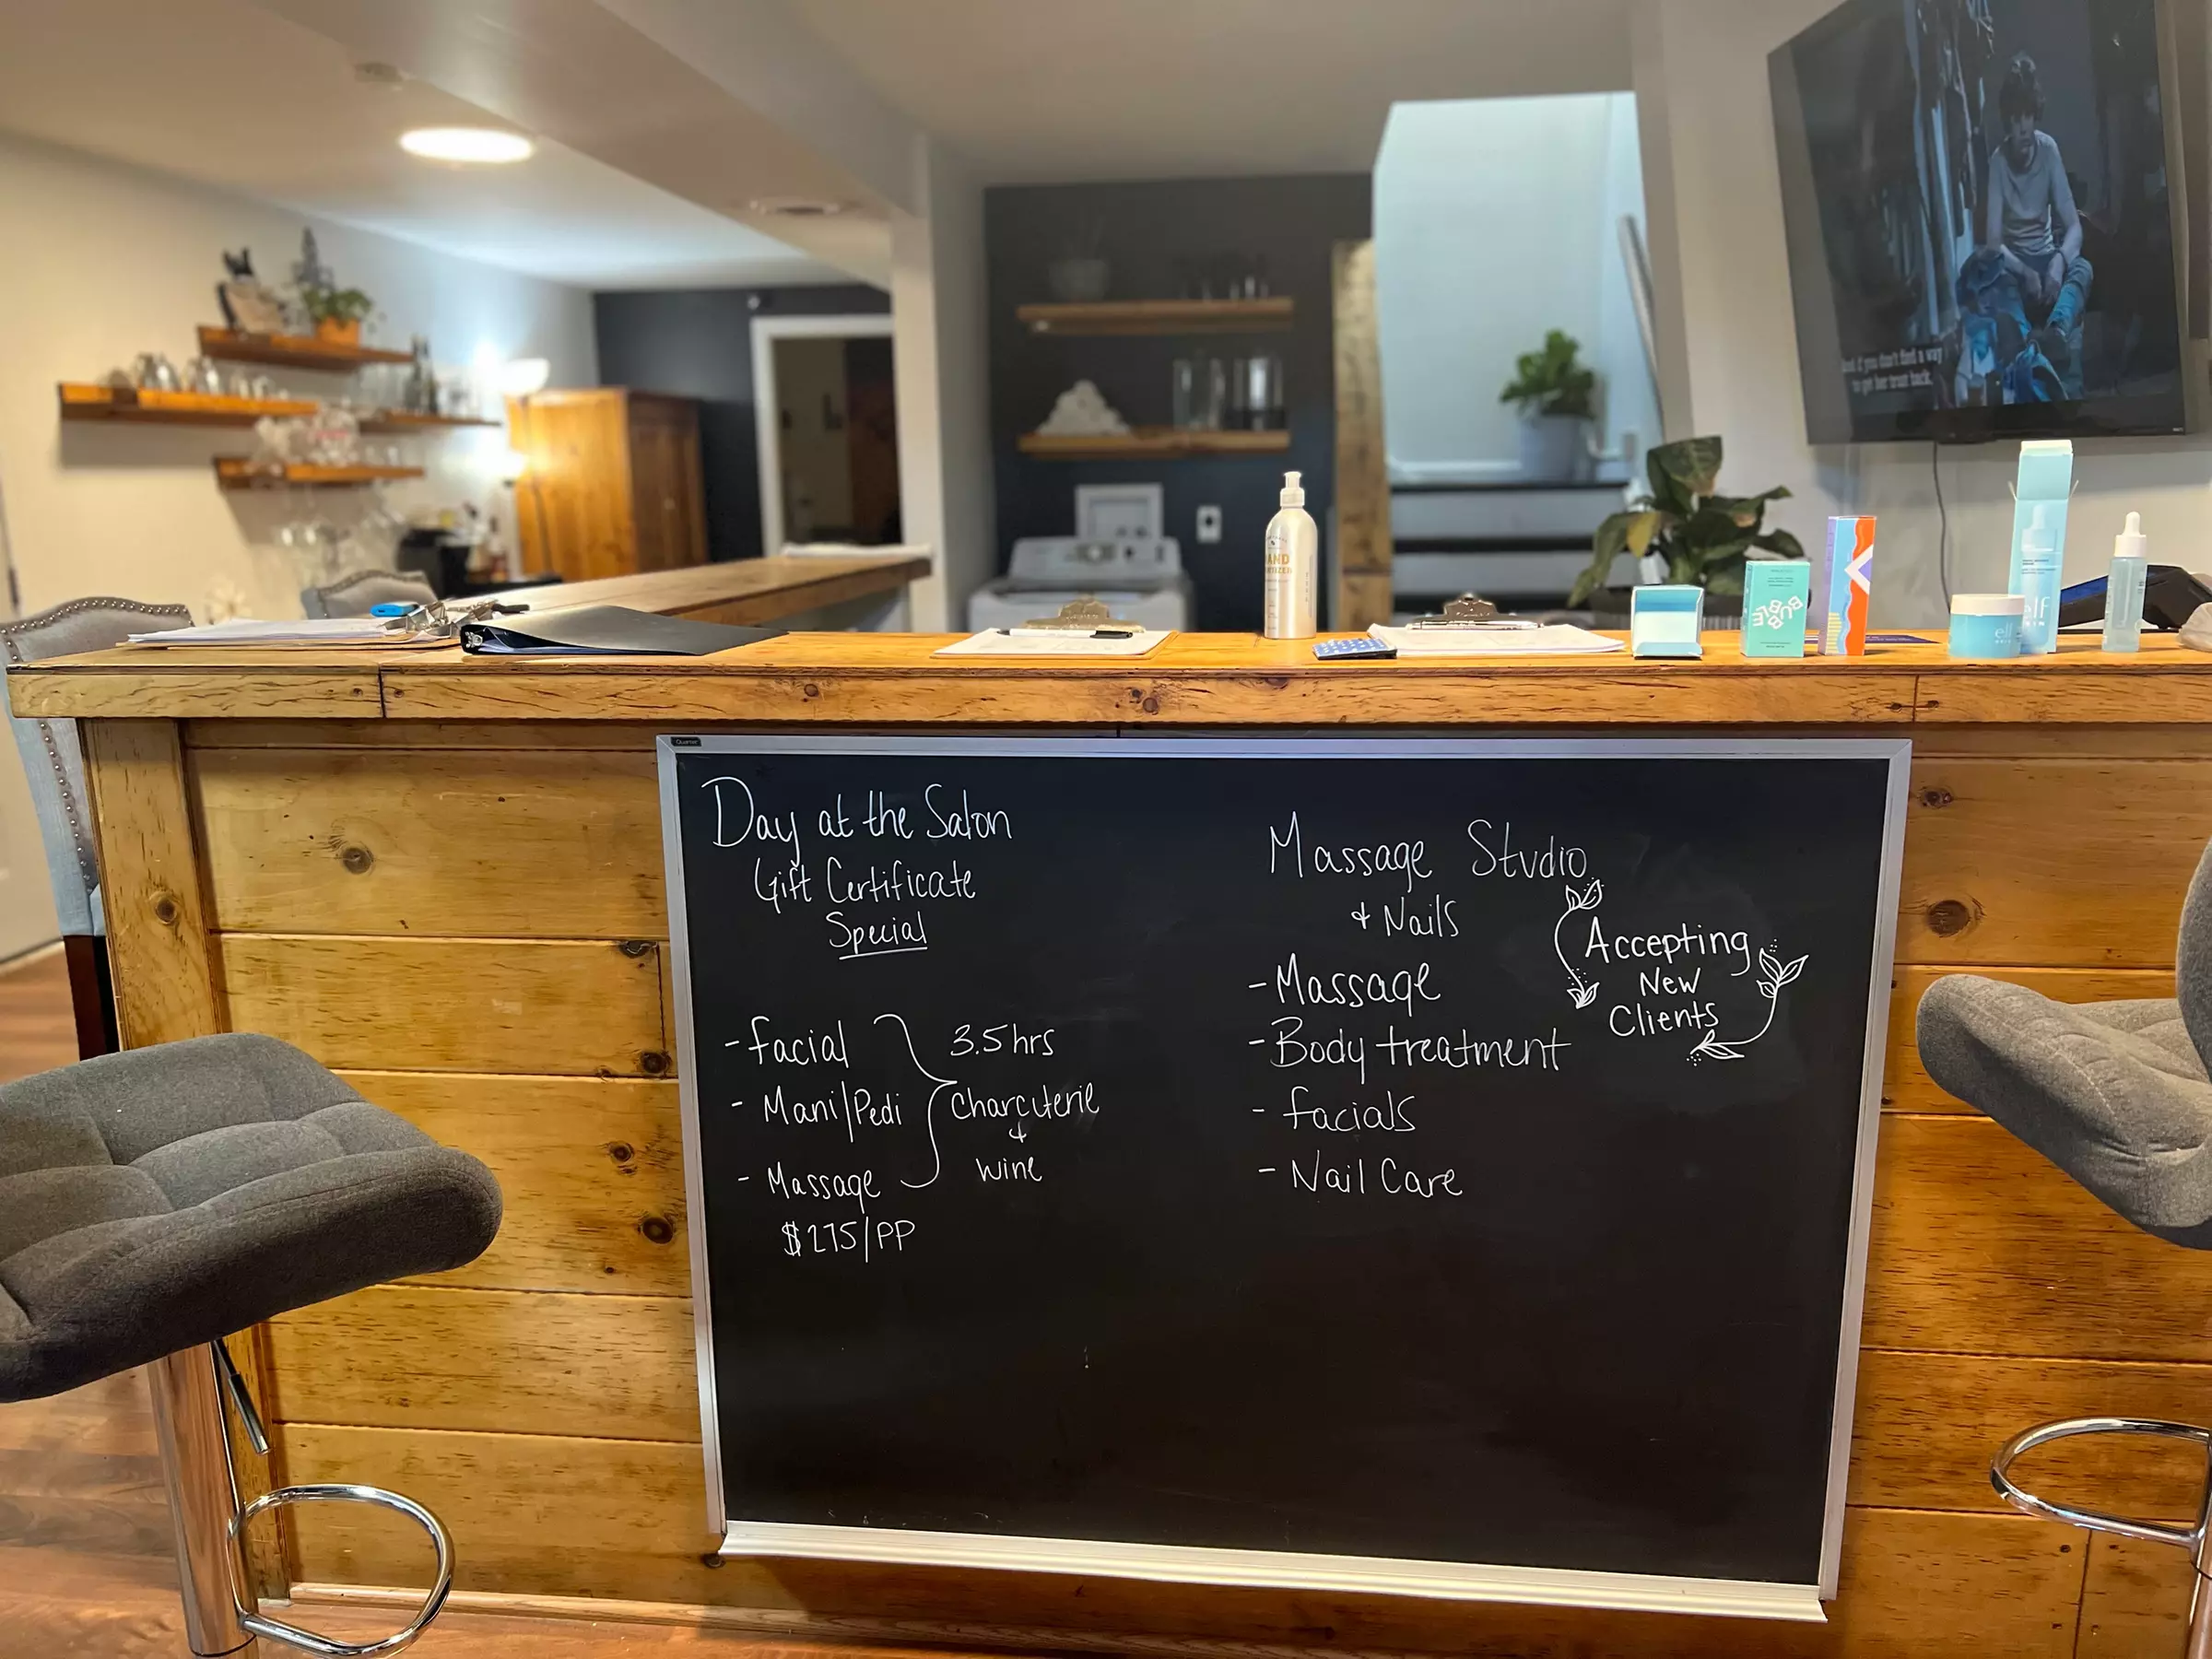 and if you don't find a way
to get her trust back.
Quartet
Day at the Salon
Gift Certificate
Special
- Facial
- Mani/Pedi
- Massage
$275/PP
3.5 hrs
Charcuterie
+
wine
Massage Studio
+ Nails
- Massage
- Body treatment
- Facials
- Nail Care
Accepting
New
Clients
BUBBLE
elf
elf
SKIN